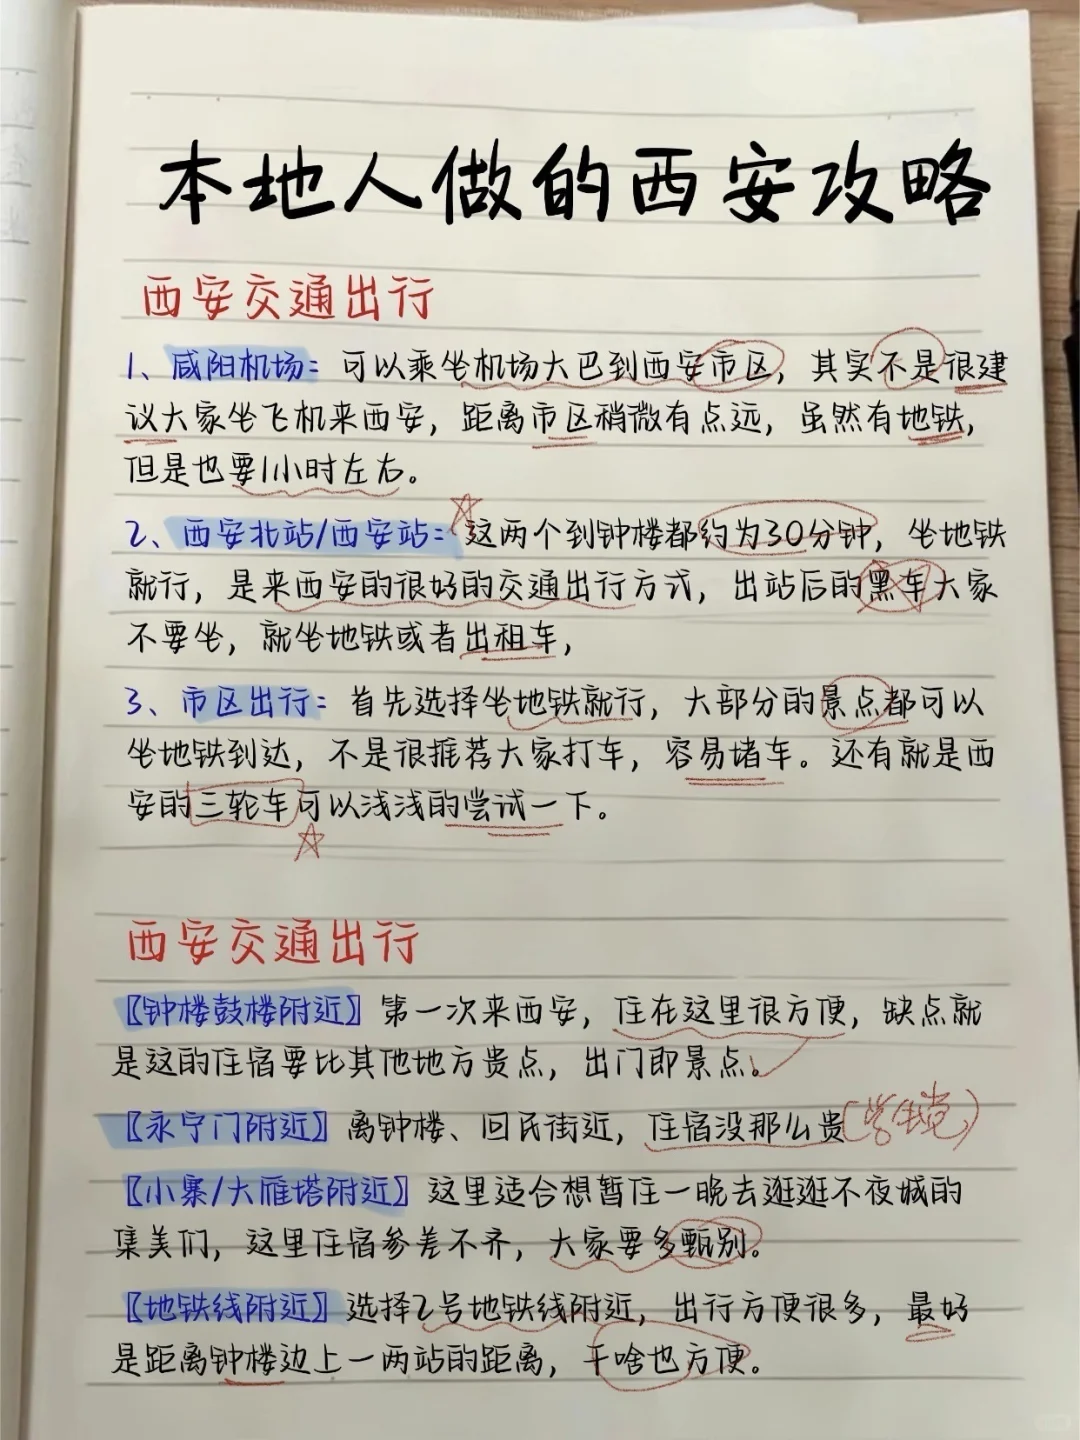 本地人做的西安攻略
西安交通出行
1、咸阳机场：可以乘坐机场大巴到西安市区，其实不是很建
议大家坐飞机来西安，距离市区稍微有点远，虽然有地铁，
但是也要1小时左右。
2、西安北站/西安站：这两个到钟楼都约为30分钟，坐地铁
就行，是来西安的很好的交通出行方式，出站后的黑车大家
不要坐，就坐地铁或者出租车，
3、市区出行：首先选择坐地铁就行，大部分的景点都可以
坐地铁到达，不是很推荐大家打车，容易堵车。还有就是西
安的三轮车可以浅浅的尝试一下。
西安交通出行
【钟楼鼓楼附近】第一次来西安，住在这里很方便，缺点就
是这的住宿要比其他地方贵点，出门即景点。
【永宁门附近】离钟楼、回民街近，住宿没那么贵
【小寨/大雁塔附近】这里适合想暂住一晚去逛逛不夜城的
集美们，这里住宿参差不齐，大家要多甄别。
【地铁线附近】选择2号地铁线附近，出行方便很多，最好
是距离钟楼边上一两站的距离，干啥也方便。